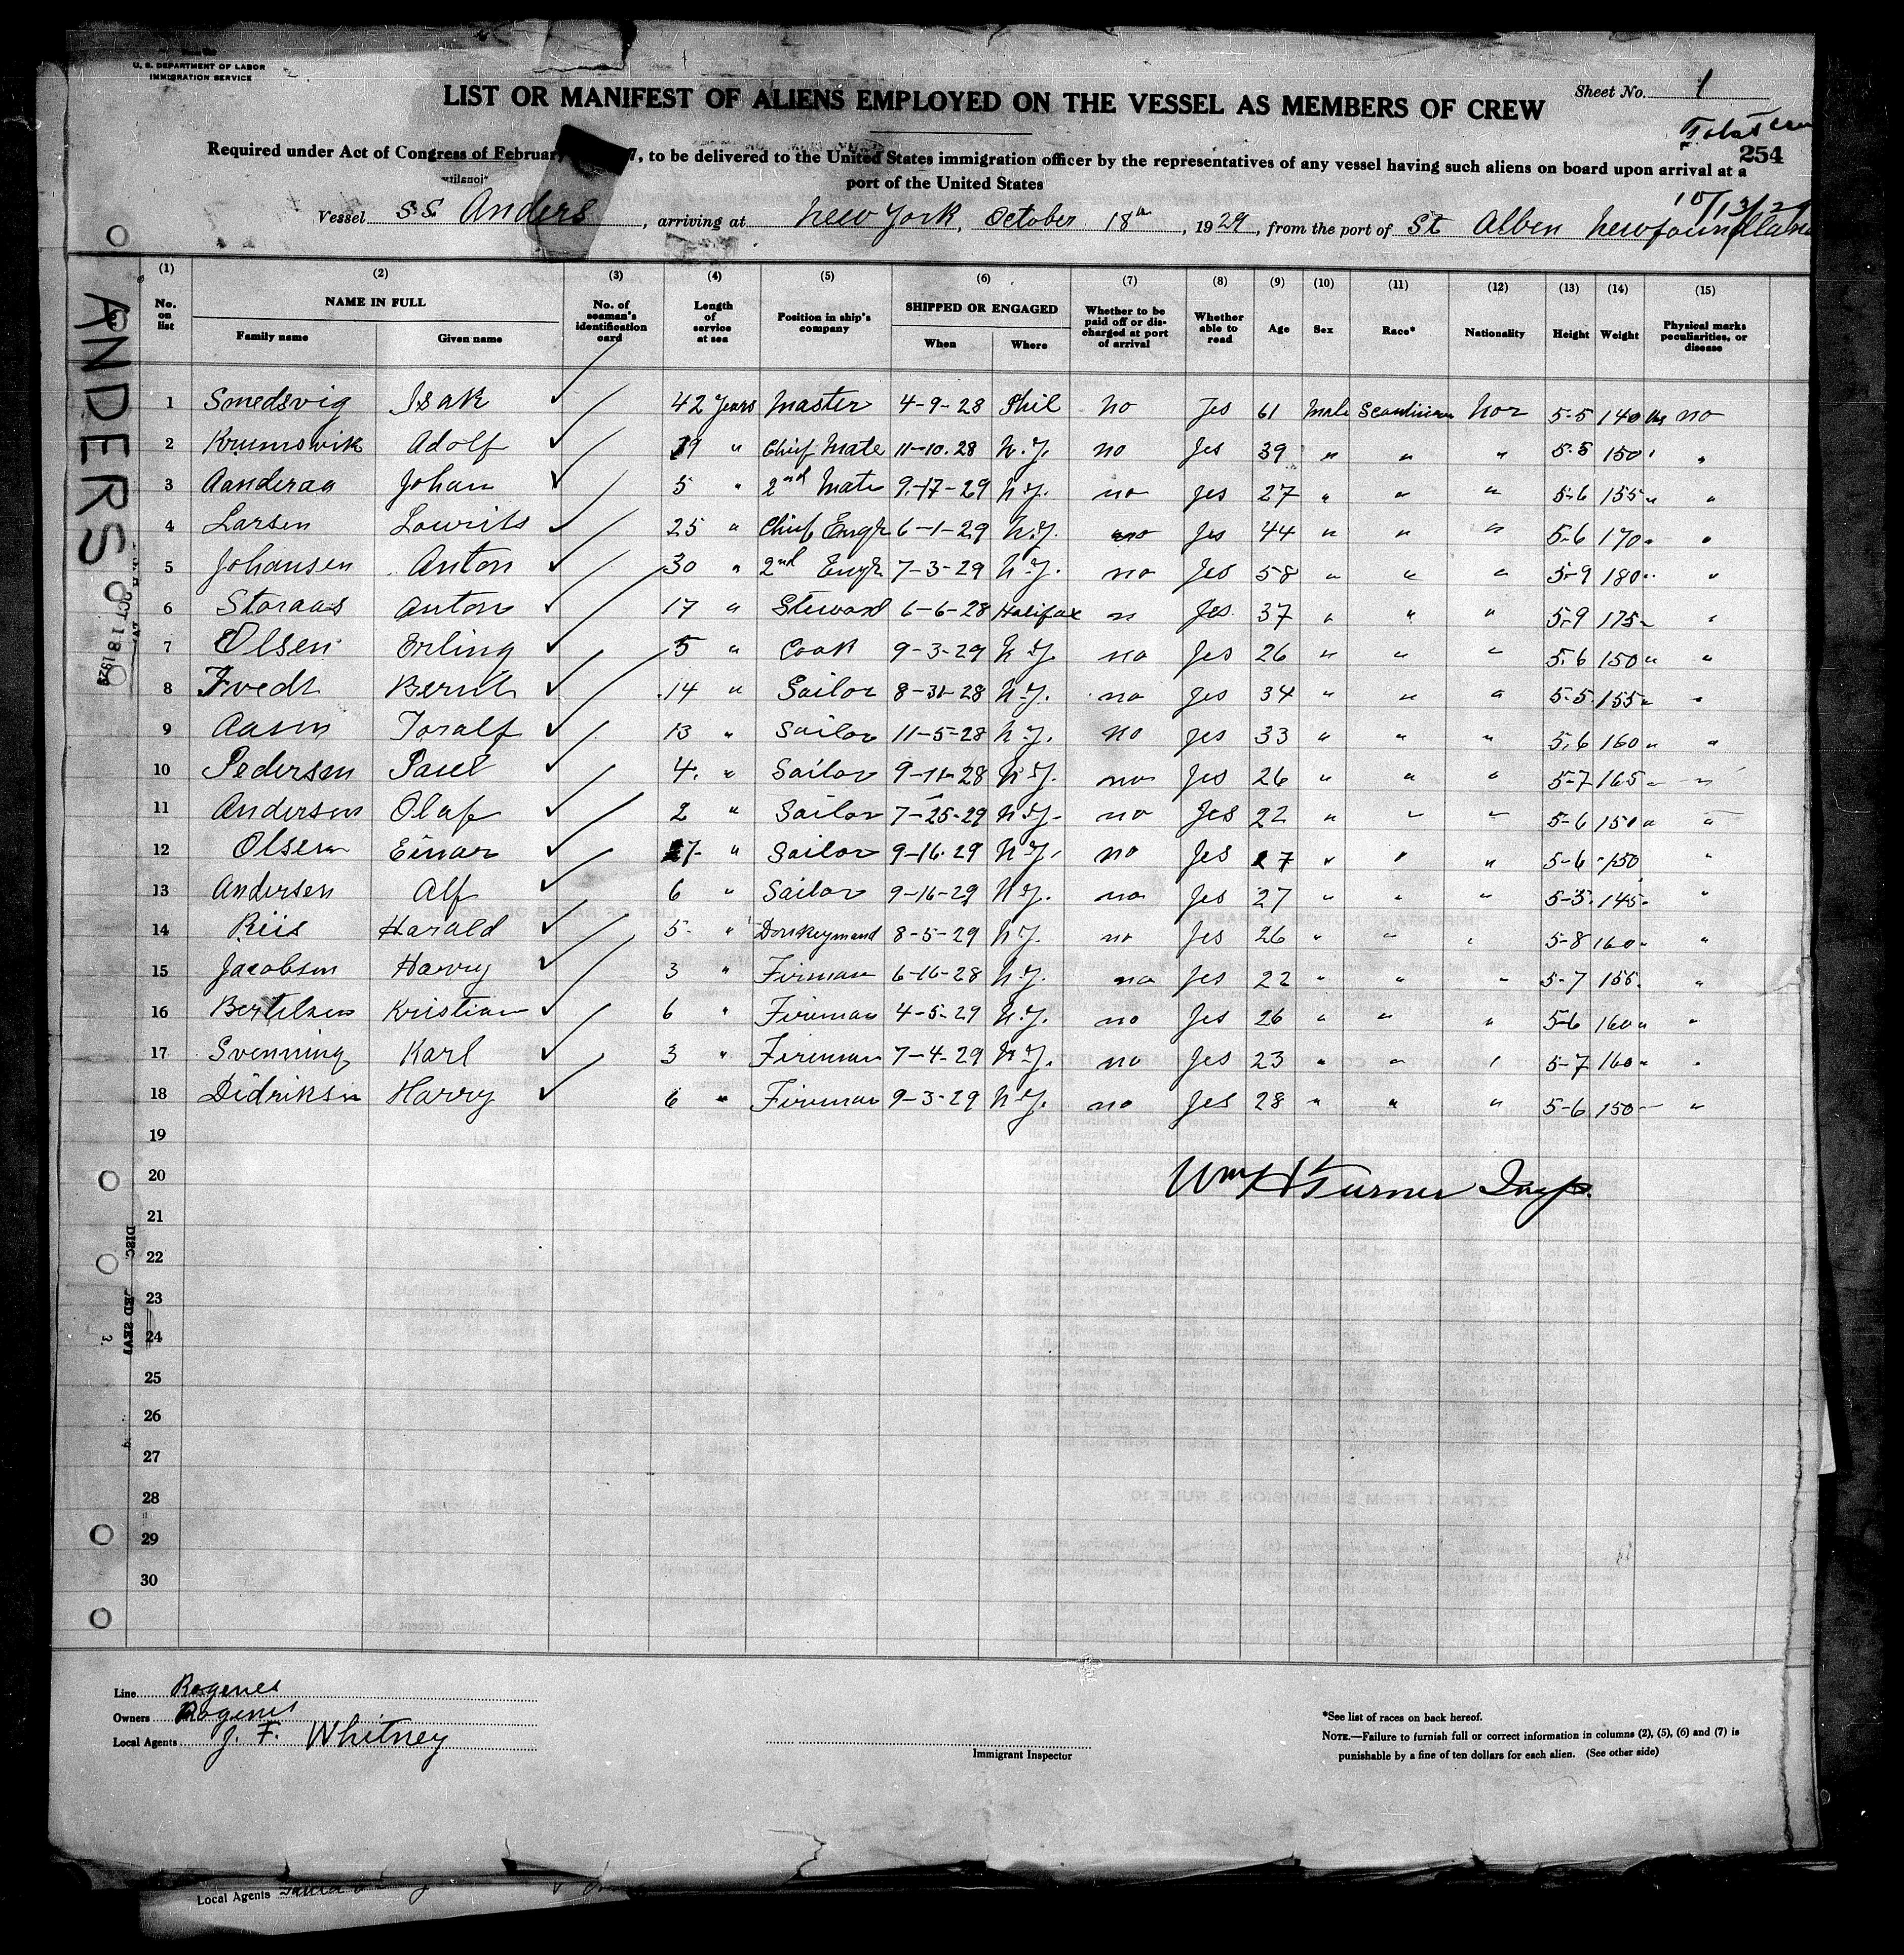 U. S. DEPARTMENT OF LABOR
IMMIGRATION SERVICE
Sheet No. 1
LIST OR MANIFEST OF ALIENS EMPLOYED ON THE VESSEL AS MEMBERS OF CREW
254
Required under Act of Congress of February 7, to be delivered to the United States immigration officer by the representatives of any vessel having such aliens on board upon arrival at a
port of the United States
10/13/29
Vessel S.S. Anders, arriving at New York, October 18th, 1929, from the port of St Alben Newfoundland
ANDERS
OCT 18 1929
(1) (2) (3) (4) (5) (6) (7) (8) (9) (10) (11) (12) (13) (14) (15)
No. on list NAME IN FULL Family name Given name No. of seaman's identification card Length of service at sea Position in ship's company SHIPPED OR ENGAGED When Where Whether to be paid off or discharged at port of arrival Whether able to read Age Sex Race* Nationality Height Weight Physical marks peculiarities, or disease
1 Smedsvig Isak ✓ 42 Years Master 4-9-28 Phil no Yes 61 Male Scandinavian Nor 5-5 140 lbs no
2 Krumsvik Adolf ✓ 19 " Chief Mate 11-10-28 N.Y. no Yes 39 " " " 5-5 150 " "
3 Aanderaa Johan ✓ 5 " 2nd Mate 9-17-29 N.Y. no Yes 27 " " " 5-6 155 " "
4 Larsen Lourits ✓ 25 " Chief Engr 6-1-29 N.Y. no Yes 44 " " " 5-6 170 " "
5 Johansen Anton ✓ 30 " 2nd Engr 7-3-29 N.Y. no Yes 58 " " " 5-9 180 " "
6 Storaas Anton ✓ 17 " Steward 6-6-28 Halifax n Yes 37 " " " 5-9 175 " "
7 Olsen Erling ✓ 5 " Cook 9-3-29 N.Y. no Yes 26 " " " 5-6 150 " "
8 Tvedt Bernt ✓ 14 " Sailor 8-31-28 N.Y. no Yes 34 " " " 5-5 155 " "
9 Aasen Toralf ✓ 13 " Sailor 11-5-28 N.Y. no Yes 33 " " " 5-6 160 " "
10 Pedersen Paul ✓ 4 " Sailor 9-11-28 N.Y. no Yes 26 " " " 5-7 165 " "
11 Andersen Olaf ✓ 2 " Sailor 7-25-29 N.Y. no Yes 22 " " " 5-6 150 " "
12 Olsen Einar ✓ 7 " Sailor 9-16-29 N.Y. no Yes 27 " " " 5-6 150 "
13 Andersen Alf ✓ 6 " Sailor 9-16-29 N.Y. no Yes 27 " " " 5-3 145 " "
14 Riis Harald ✓ 5 " Donkeymand 8-5-29 N.Y. no Yes 26 " " " 5-8 160 " "
15 Jacobsen Harry ✓ 3 " Fireman 6-16-28 N.Y. no Yes 22 " " " 5-7 155 "
16 Bertelsen Kristian ✓ 6 " Fireman 4-5-29 N.Y. no Yes 26 " " " 5-6 160 " "
17 Svenning Karl ✓ 3 " Fireman 7-4-29 N.Y. no Yes 23 " " " 5-7 160 " "
18 Didriksen Harry ✓ 6 " Fireman 9-3-29 N.Y. no Yes 28 " " " 5-6 150 " "
19
20 Wm H Turner Insp.
21
22
23
24
25
26
27
28
29
30
Line Rogenes
Owners Rogenes
Local Agents J. F. Whitney
Immigrant Inspector
*See list of races on back hereof.
NOTE.—Failure to furnish full or correct information in columns (2), (5), (6) and (7) is
punishable by a fine of ten dollars for each alien. (See other side)
Local Agents